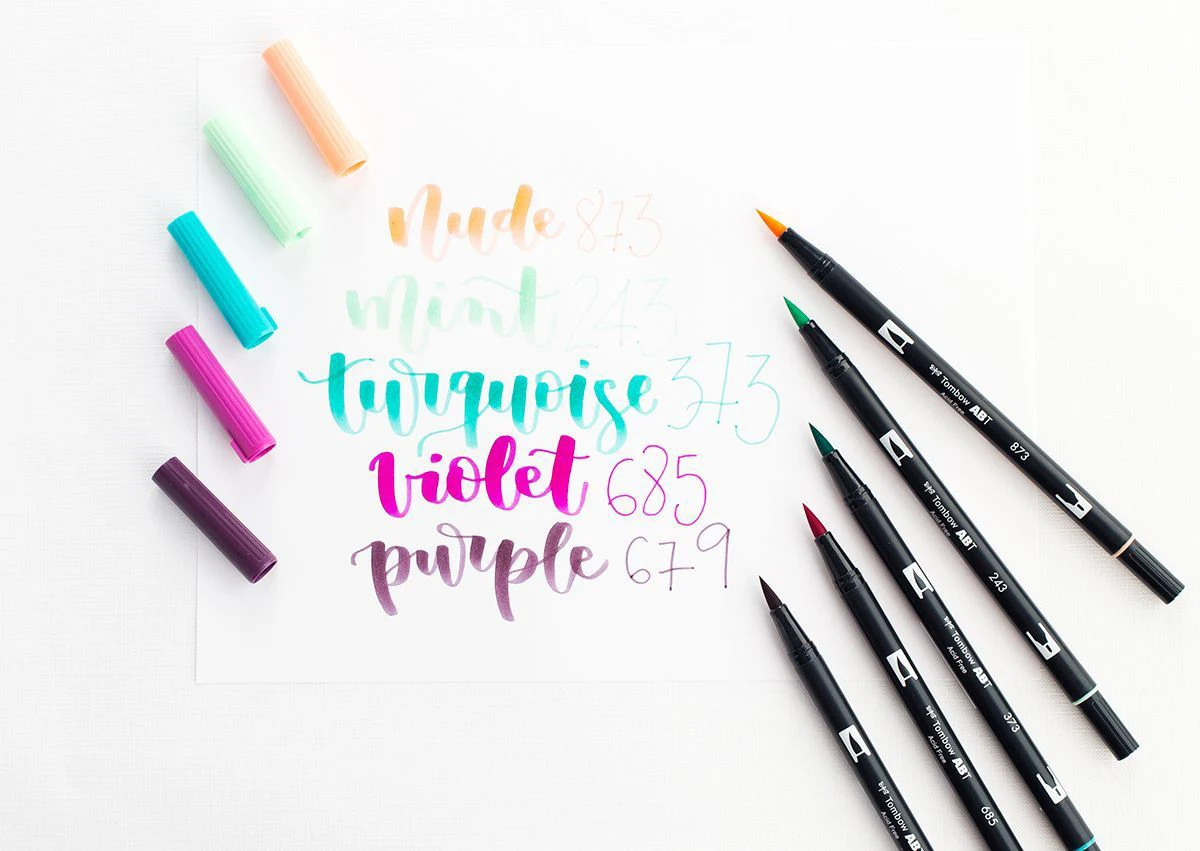 nude 873
mint 243
turquoise 373
violet 685
purple 679
Tombow ABT 873
Acid Free
Tombow ABT 243
Acid Free
Tombow ABT 373
Acid Free
Tombow ABT 685
Acid Free
Tombow ABT
Acid Free